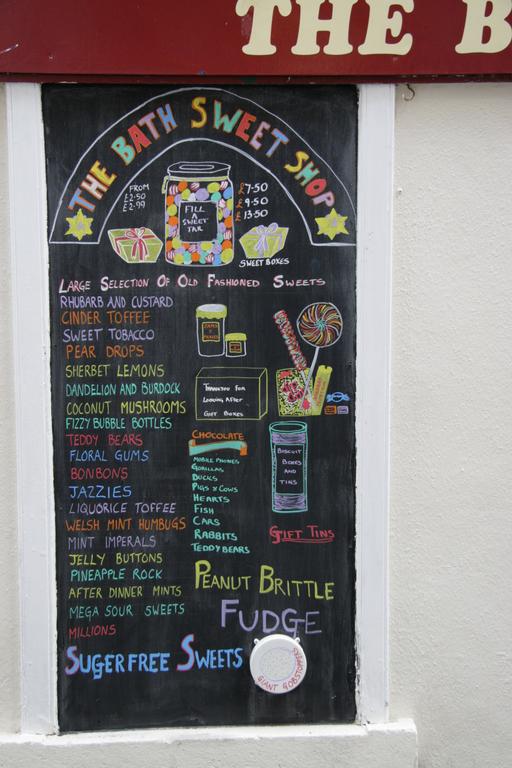 THE B
THE BATH SWEET SHOP
FROM
£2.50
£2.99
FILL
A
SWEET
JAR
£7.50
£9.50
£13.50
SWEET BOXES
LARGE SELECTION OF OLD FASHIONED SWEETS
RHUBARB AND CUSTARD
CINDER TOFFEE
SWEET TOBACCO
PEAR DROPS
SHERBET LEMONS
DANDELION AND BURDOCK
COCONUT MUSHROOMS
FIZZY BUBBLE BOTTLES
TEDDY BEARS
FLORAL GUMS
BONBONS
JAZZIES
LIQUORICE TOFFEE
WELSH MINT HUMBUGS
MINT IMPERIALS
JELLY BUTTONS
PINEAPPLE ROCK
AFTER DINNER MINTS
MEGA SOUR SWEETS
MILLIONS
THANKYOU FOR
LOOKING AFTER
GIFT BOXES
CHOCOLATE
MOBILE PHONES
GORILLAS
DUCKS
PIGS & COWS
HEARTS
FISH
CARS
RABBITS
TEDDY BEARS
BISCUIT
BOXES
AND
TINS
GIFT TINS
PEANUT BRITTLE
FUDGE
SUGERFREE SWEETS
GIANT GOBSTOPPERS